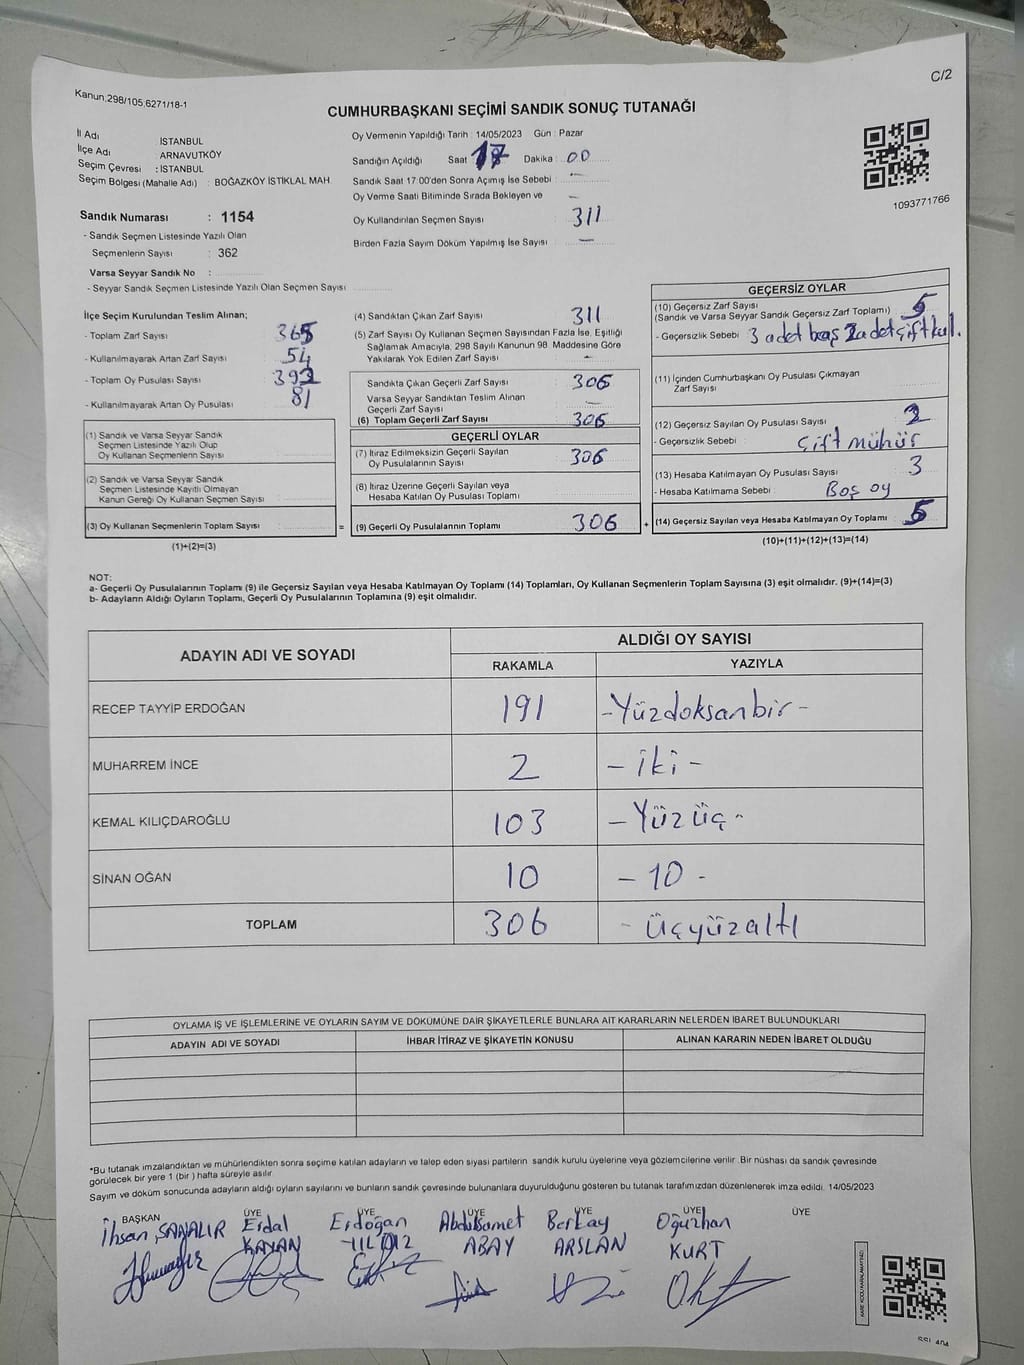 C/2
Kanun:298/105,6271/18-1
CUMHURBAŞKANI SEÇİMİ SANDIK SONUÇ TUTANAĞI
İl Adı : İSTANBUL
İlçe Adı : ARNAVUTKÖY
Seçim Çevresi : İSTANBUL
Seçim Bölgesi (Mahalle Adı) : BOĞAZKÖY İSTİKLAL MAH.
Sandık Numarası : 1154
- Sandık Seçmen Listesinde Yazılı Olan
Seçmenlerin Sayısı : 362
Varsa Seyyar Sandık No :
- Seyyar Sandık Seçmen Listesinde Yazılı Olan Seçmen Sayısı :
Oy Vermenin Yapıldığı Tarih : 14/05/2023 Gün : Pazar
Sandığın Açıldığı Saat 17 Dakika : 00
Sandık Saat 17:00'den Sonra Açılmış İse Sebebi : -
Oy Verme Saati Bitiminde Sırada Bekleyen ve
Oy Kullandırılan Seçmen Sayısı 311
Birden Fazla Sayım Döküm Yapılmış İse Sayısı -
1093771766
İlçe Seçim Kurulundan Teslim Alınan;
- Toplam Zarf Sayısı : 365
- Kullanılmayarak Artan Zarf Sayısı : 54
- Toplam Oy Pusulası Sayısı : 392
- Kullanılmayarak Artan Oy Pusulası : 81
(1) Sandık ve Varsa Seyyar Sandık
Seçmen Listesinde Yazılı Olup
Oy Kullanan Seçmenlerin Sayısı
(2) Sandık ve Varsa Seyyar Sandık
Seçmen Listesinde Kayıtlı Olmayan
Kanun Gereği Oy Kullanan Seçmen Sayısı :
(3) Oy Kullanan Seçmenlerin Toplam Sayısı :
(1)+(2)=(3)
=
(4) Sandıktan Çıkan Zarf Sayısı : 311
(5) Zarf Sayısı Oy Kullanan Seçmen Sayısından Fazla İse, Eşitliği
Sağlamak Amacıyla, 298 Sayılı Kanunun 98. Maddesine Göre
Yakılarak Yok Edilen Zarf Sayısı : -
Sandıkta Çıkan Geçerli Zarf Sayısı : 306
Varsa Seyyar Sandıktan Teslim Alınan
Geçerli Zarf Sayısı : -
(6) Toplam Geçerli Zarf Sayısı : 306
GEÇERLİ OYLAR
(7) İtiraz Edilmeksizin Geçerli Sayılan
Oy Pusulalarının Sayısı : 306
(8) İtiraz Üzerine Geçerli Sayılan veya
Hesaba Katılan Oy Pusulası Toplamı :
(9) Geçerli Oy Pusulalarının Toplamı : 306
+
GEÇERSİZ OYLAR
(10) Geçersiz Zarf Sayısı
(Sandık ve Varsa Seyyar Sandık Geçersiz Zarf Toplamı) : 5
- Geçersizlik Sebebi : 3 adet boş 2 adet çift kul.
(11) İçinden Cumhurbaşkanı Oy Pusulası Çıkmayan
Zarf Sayısı
(12) Geçersiz Sayılan Oy Pusulası Sayısı : 2
- Geçersizlik Sebebi : çift mühür
(13) Hesaba Katılmayan Oy Pusulası Sayısı : 3
- Hesaba Katılmama Sebebi : Boş oy
(14) Geçersiz Sayılan veya Hesaba Katılmayan Oy Toplamı : 5
(10)+(11)+(12)+(13)=(14)
NOT:
a- Geçerli Oy Pusulalarının Toplamı (9) ile Geçersiz Sayılan veya Hesaba Katılmayan Oy Toplamı (14) Toplamları, Oy Kullanan Seçmenlerin Toplam Sayısına (3) eşit olmalıdır. (9)+(14)=(3)
b- Adayların Aldığı Oyların Toplamı, Geçerli Oy Pusulalarının Toplamına (9) eşit olmalıdır.
ADAYIN ADI VE SOYADI
ALDIĞI OY SAYISI
RAKAMLA YAZIYLA
RECEP TAYYİP ERDOĞAN 191 -Yüzdoksanbir-
MUHARREM İNCE 2 -iki-
KEMAL KILIÇDAROĞLU 103 -Yüzüç-
SİNAN OĞAN 10 -10-
TOPLAM 306 -üçyüzaltı
OYLAMA İŞ VE İŞLEMLERİNE VE OYLARIN SAYIM VE DÖKÜMÜNE DAİR ŞİKAYETLERLE BUNLARA AİT KARARLARIN NELERDEN İBARET BULUNDUKLARI
ADAYIN ADI VE SOYADI İHBAR İTİRAZ VE ŞİKAYETİN KONUSU ALINAN KARARIN NEDEN İBARET OLDUĞU
*Bu tutanak imzalandıktan ve mühürlendikten sonra seçime katılan adayların ve talep eden siyasi partilerin sandık kurulu üyelerine veya gözlemcilerine verilir. Bir nüshası da sandık çevresinde
görülecek bir yere 1 (bir) hafta süreyle asılır.
Sayım ve döküm sonucunda adayların aldığı oyların sayılarını ve bunların sandık çevresinde bulunanlara duyurulduğunu gösteren bu tutanak tarafımızdan düzenlenerek imza edildi. 14/05/2023
BAŞKAN ÜYE ÜYE ÜYE ÜYE ÜYE ÜYE
İhsan Erdal Erdoğan Abdulsamet Berkay Oğuzhan
KAYAN ABAY ARSLAN KURT